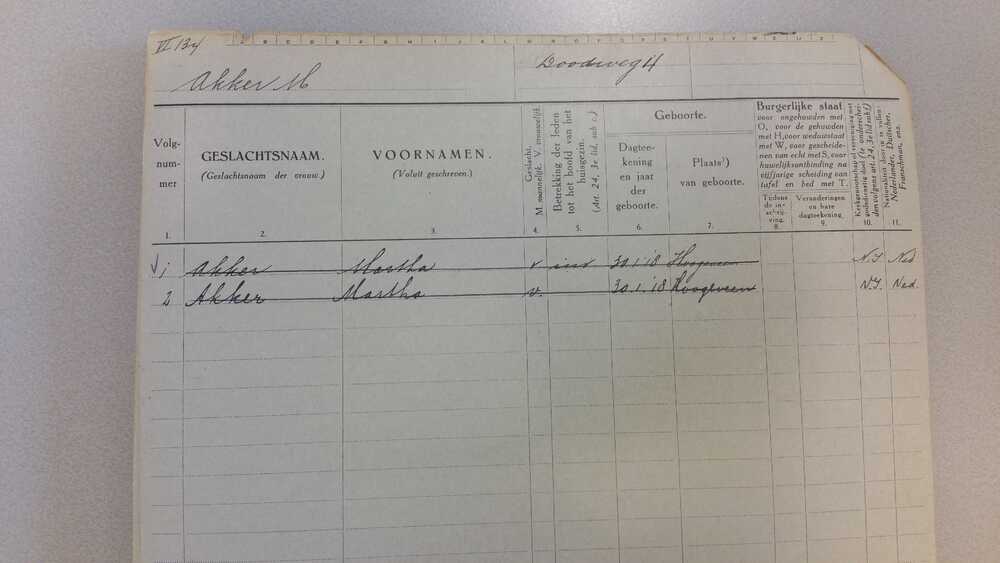 VI 134
A B C D E F G H I J K L M N O P Q R S T U V W X Y Z
Akker M
Doodweg 4
Volg-
num-
mer
GESLACHTSNAAM.
(Geslachtsnaam der vrouw.)
VOORNAMEN.
(Voluit geschreven.)
Geslacht.
M. mannelijk. V. vrouwelijk.
Betrekking der leden
tot het hoofd van het
huisgezin.
(Art. 24, 3e lid, sub c.)
Geboorte.
Dagtee-
kening
en jaar
der
geboorte.
Plaats¹)
van geboorte.
Burgerlijke staat
voor ongehuwden met
O, voor de gehuwden
met H, voor weduwstaat
met W, voor gescheide-
nen van echt met S, voor
huwelijksontbinding na
vijfjarige scheiding van
tafel en bed met T.
Tijdens
de in-
schrij-
ving.
Veranderingen
en hare
dagteekening.
Kerkgenootschap of vereeniging met
godsdienstig doel (te onderschei-
den volgens art. 24, 3e lid sub f)
Nationaliteit door in te vullen:
Nederlander, Duitscher,
Franschman, enz.
1. 2. 3. 4. 5. 6. 7. 8. 9. 10. 11.
1 Akker Martha v inw 30 1 '18 Hoogeveen N.I Ned
2 Akker Martha v. 30.1.'18 Hoogeveen N.I. Ned.